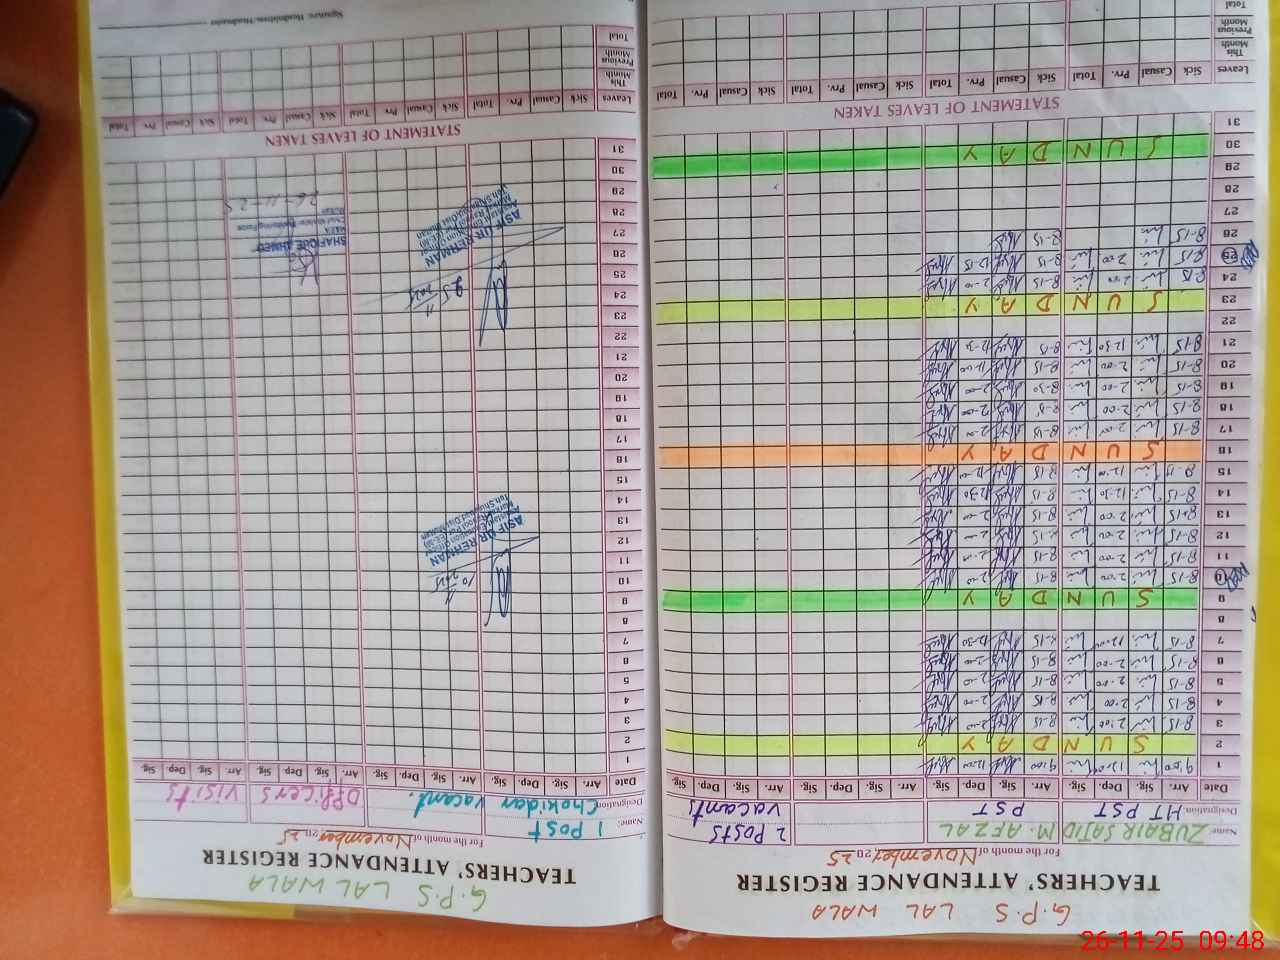 G.P.S LAL WALA
TEACHERS' ATTENDANCE REGISTER
For the month of November, 2025
Name: ZUBAIR SAJID M. AFZAL 2 Posts
Designation HT PST PST vacants
Date Arr. Sig. Dep. Sig. Arr. Sig. Dep. Sig. Arr. Sig. Dep. Sig. Arr. Sig. Dep. Sig.
1 9:00 12:00 9:00 12:00
2 SUNDAY
3 8-15 2:00 8-15 2-00
4 8-15 2-00 8-15 2-00
5 8-15 2-00 8-15 2-00
6 8-15 2-00 8-15 2-00
7 8-15 12:00 8-15 12-30
8
9 SUNDAY
10 8-15 2:00 8-15 2-00
11 8-15 2:00 8-15 2-00
12 8-15 2:00 8-15 2-00
13 8-15 2:00 8-15 2-00
14 8-15 12-30 8-15 12-30
15 8-15 12:00 8-15 12-00
16 SUNDAY
17 8-15 2-00 8-15 2-00
18 8-15 2-00 8-15 2-00
19 8-15 2-00 8-30 2-00
20 8-15 2-00 8-15 11-00
21 8-15 12-30 8-15 12-30
22
23 SUNDAY
24 8-15 2:00 8-15 2-00
25 8-15 2:00 8-15 12-15
26 8-15 8-15
27
28
29
30 SUNDAY
31
STATEMENT OF LEAVES TAKEN
Leaves Sick Casual Prv. Total Sick Casual Prv. Total Sick Casual Prv. Total Sick Casual Prv. Total
This Month
Previous Month
Total
G.P.S LAL WALA
TEACHERS' ATTENDANCE REGISTER
For the month of November 2025
Name: 1 Post OFFICERS VISITS
Designation Chokidar vacant.
Date Arr. Sig. Dep. Sig. Arr. Sig. Dep. Sig. Arr. Sig. Dep. Sig. Arr. Sig. Dep. Sig.
1
2
3
4
5
6
7
8
9
10
11 ASIF UR REHMAN
12
13
14
15
16
17
18
19
20
21
22
23
24
25
26 SHAFIQUE AHMED
27 ASIF UR REHMAN
28 26-11-2
29
30
31
STATEMENT OF LEAVES TAKEN
Leaves Sick Casual Prv. Total Sick Casual Prv. Total Sick Casual Prv. Total Sick Casual Prv. Total
This Month
Previous Month
Total
Signature: Headmistress/Headmaster
26-11-25 09:48